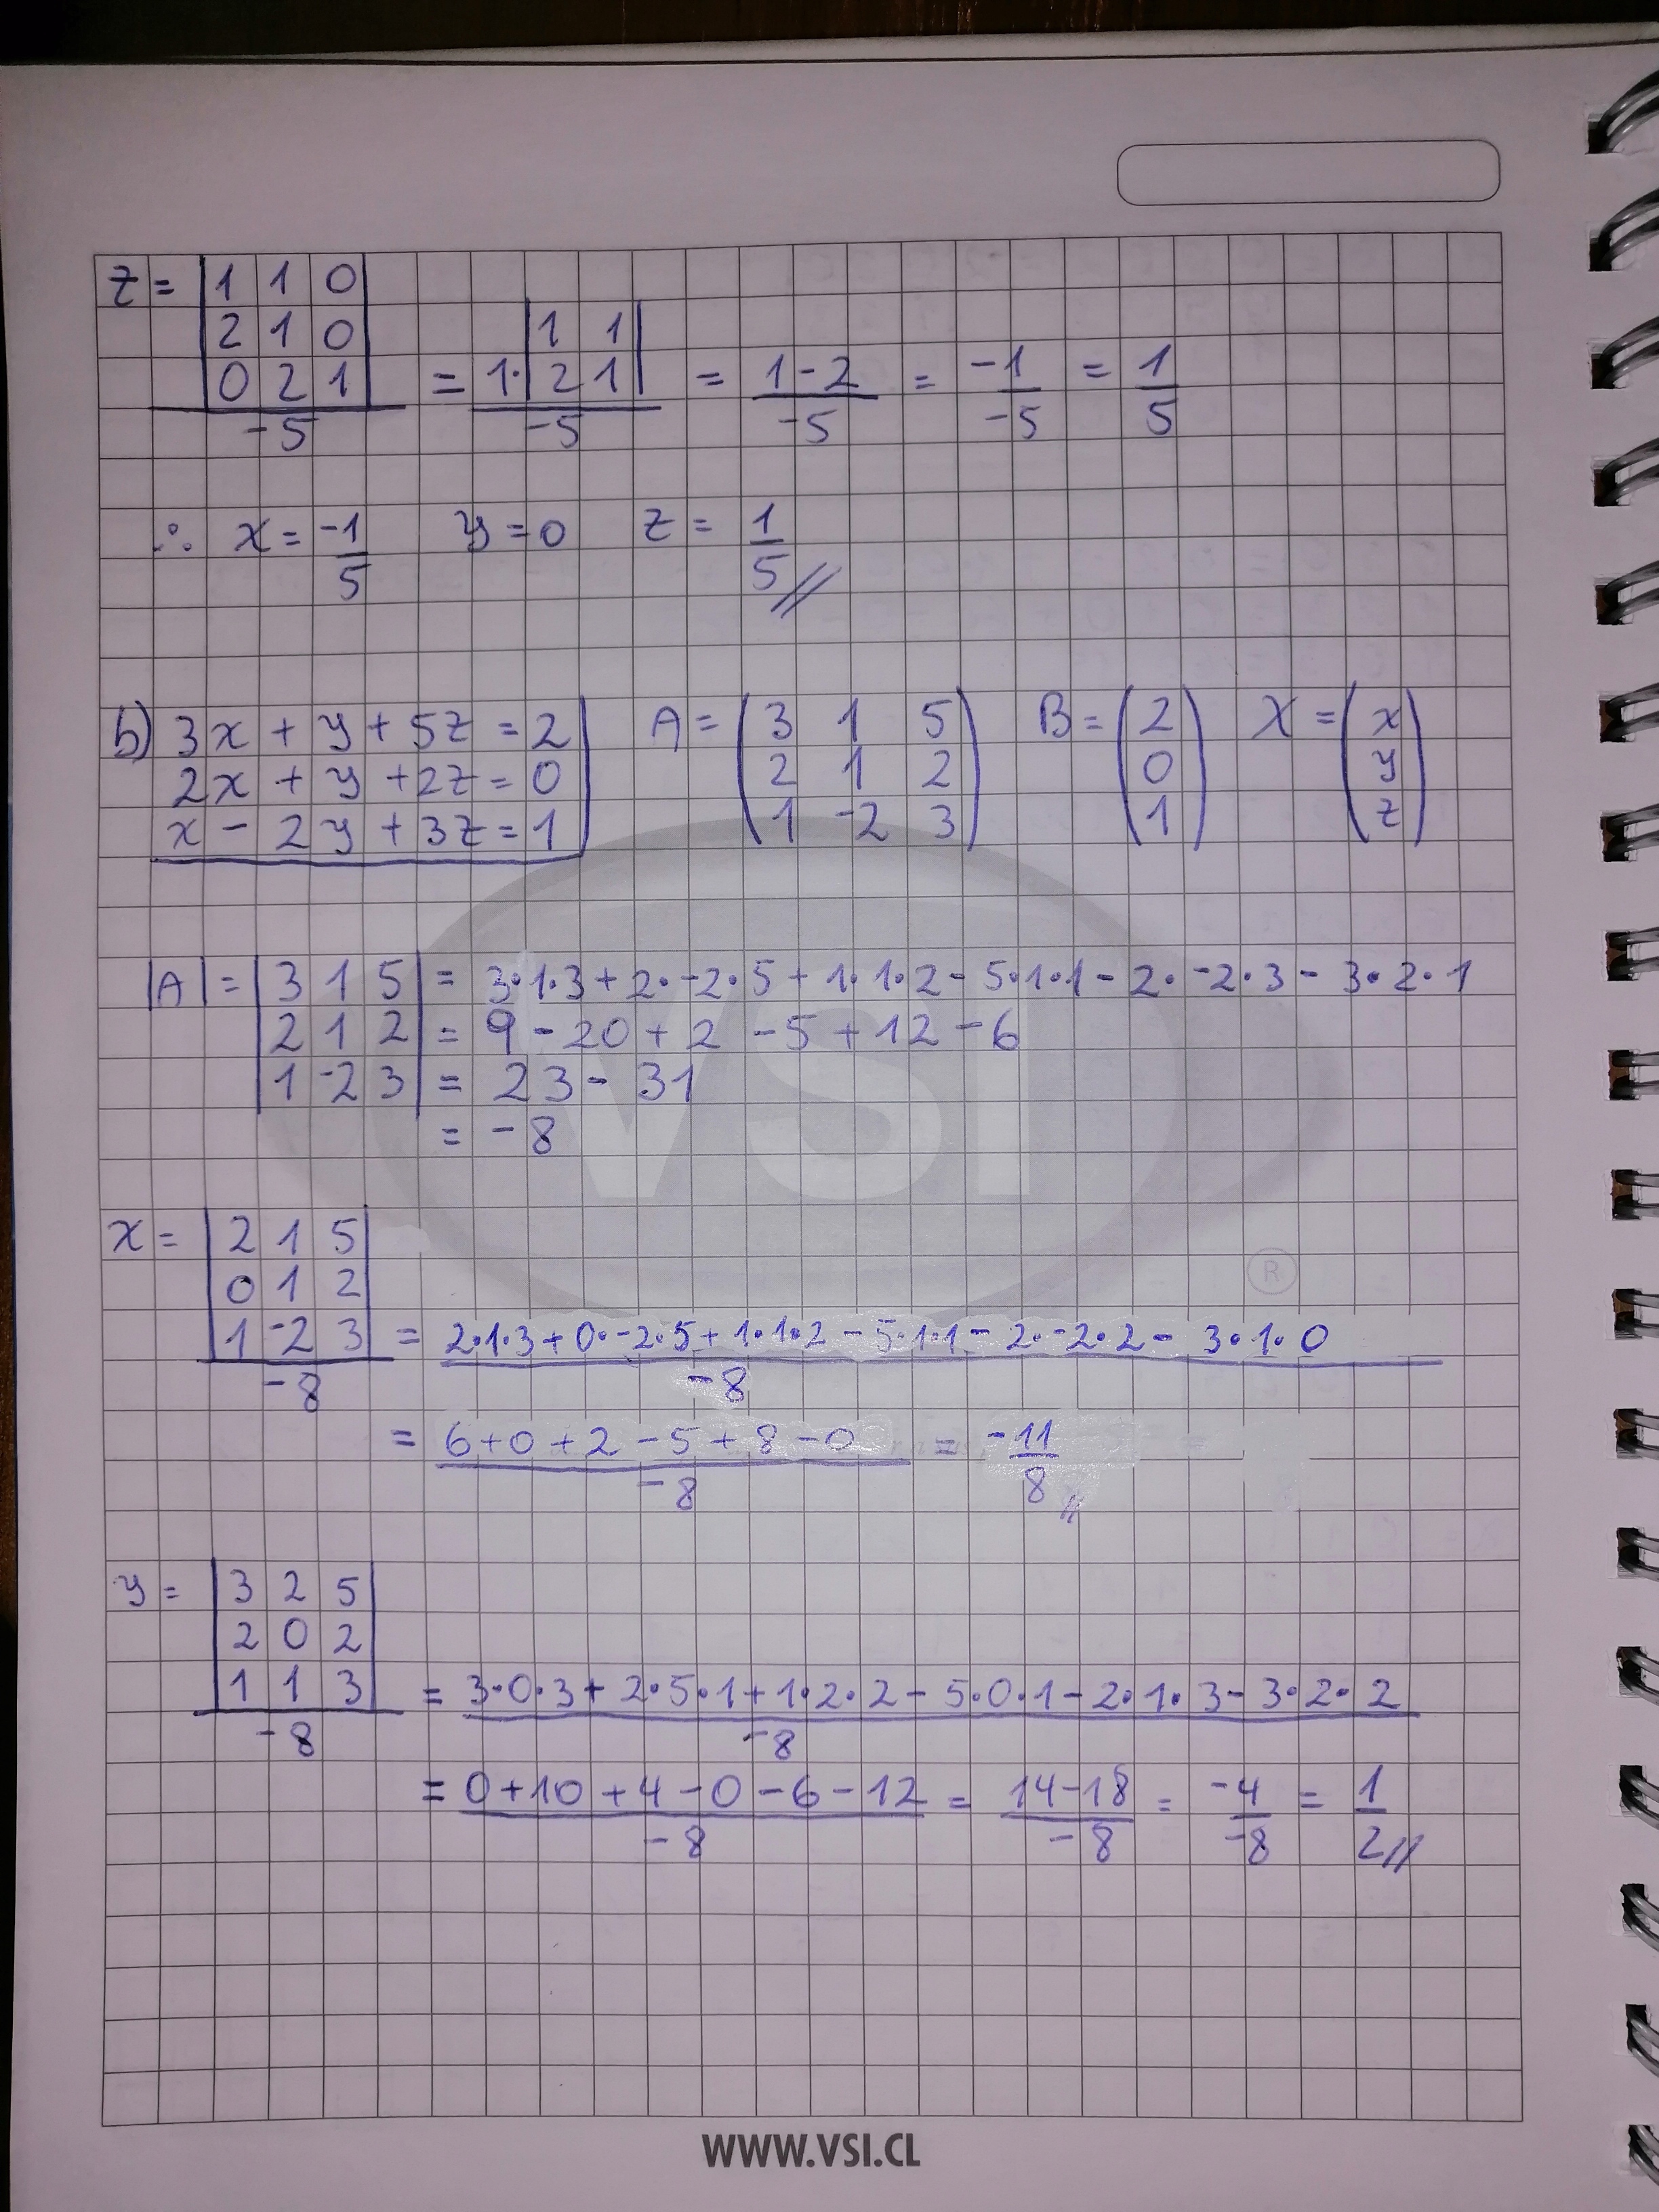 z = |1 1 0|
|2 1 0|
|0 2 1| / -5 = 1·|1 1| |2 1| / -5 = 1-2 / -5 = -1 / -5 = 1 / 5
∴ x = -1/5 y = 0 z = 1/5 //
b) 3x + y + 5z = 2 A = (3 1 5) B = (2) X = (x)
2x + y + 2z = 0 (2 1 2) (0) (y)
x - 2y + 3z = 1 (1 -2 3) (1) (z)
|A| = |3 1 5| = 3·1·3 + 2·-2·5 + 1·1·2 - 5·1·1 - 2·-2·3 - 3·2·1
|2 1 2| = 9 - 20 + 2 - 5 + 12 - 6
|1 -2 3| = 23 - 31
= -8
x = |2 1 5|
|0 1 2|
|1 -2 3| / -8 = 2·1·3 + 0·-2·5 + 1·1·2 - 5·1·1 - 2·-2·2 - 3·1·0 / -8
= 6+0+2-5+8-0 / -8 = -11/8 //
y = |3 2 5|
|2 0 2|
|1 1 3| / -8 = 3·0·3 + 2·5·1 + 1·2·2 - 5·0·1 - 2·1·3 - 3·2·2 / -8
= 0+10+4-0-6-12 / -8 = 14-18 / -8 = -4 / -8 = 1/2 //
VSI ®
WWW.VSI.CL